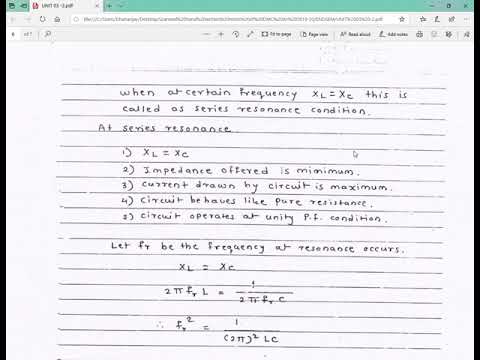 UNIT 03 -3.pdf
when at certain frequency XL = Xc this is
called as series resonance condition.
At series resonance
1) XL = Xc
2) Impedance offered is mimimum.
3) current drawn by circuit is maximum.
4) circuit behaves like pure resistance.
5) circuit operates at unity P.f. condition.
Let fr be the frequency at resonance occurs.
XL = Xc
2πfr L = 1 / 2πfr C
∴ fr² = 1 / (2π)² LC